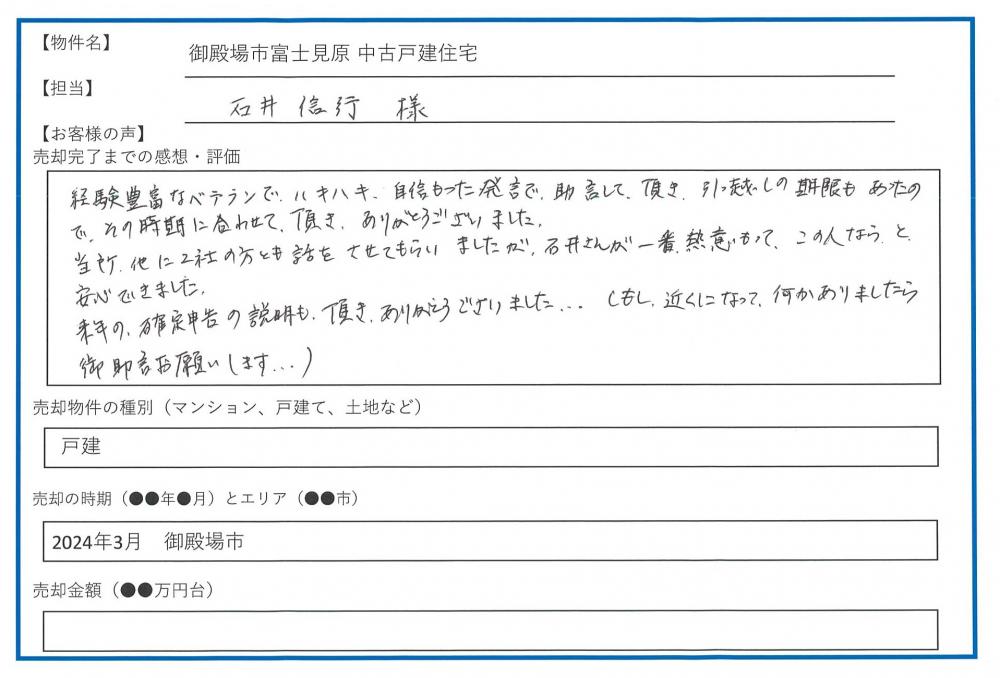 【物件名】
御殿場市富士見原 中古戸建住宅
【担当】
石井 信行 様
【お客様の声】
売却完了までの感想・評価
経験豊富なベテランで、ハキハキ、自信もった発言で、助言して、頂き、引っ越しの期限もあったの
で、その時期に合わせて、頂き、ありがとうございました。
当所、他に2社の方とも話をさせてもらいましたが、石井さんが一番、熱意もって、この人なら、と、
安心できました。
来年の、確定申告の説明も、頂き、ありがとうございました... (もし、近くになって、何かありましたら
御助言お願いします...)
売却物件の種別（マンション、戸建て、土地など）
戸建
売却の時期（●●年●月）とエリア（●●市）
2024年3月　御殿場市
売却金額（●●万円台）